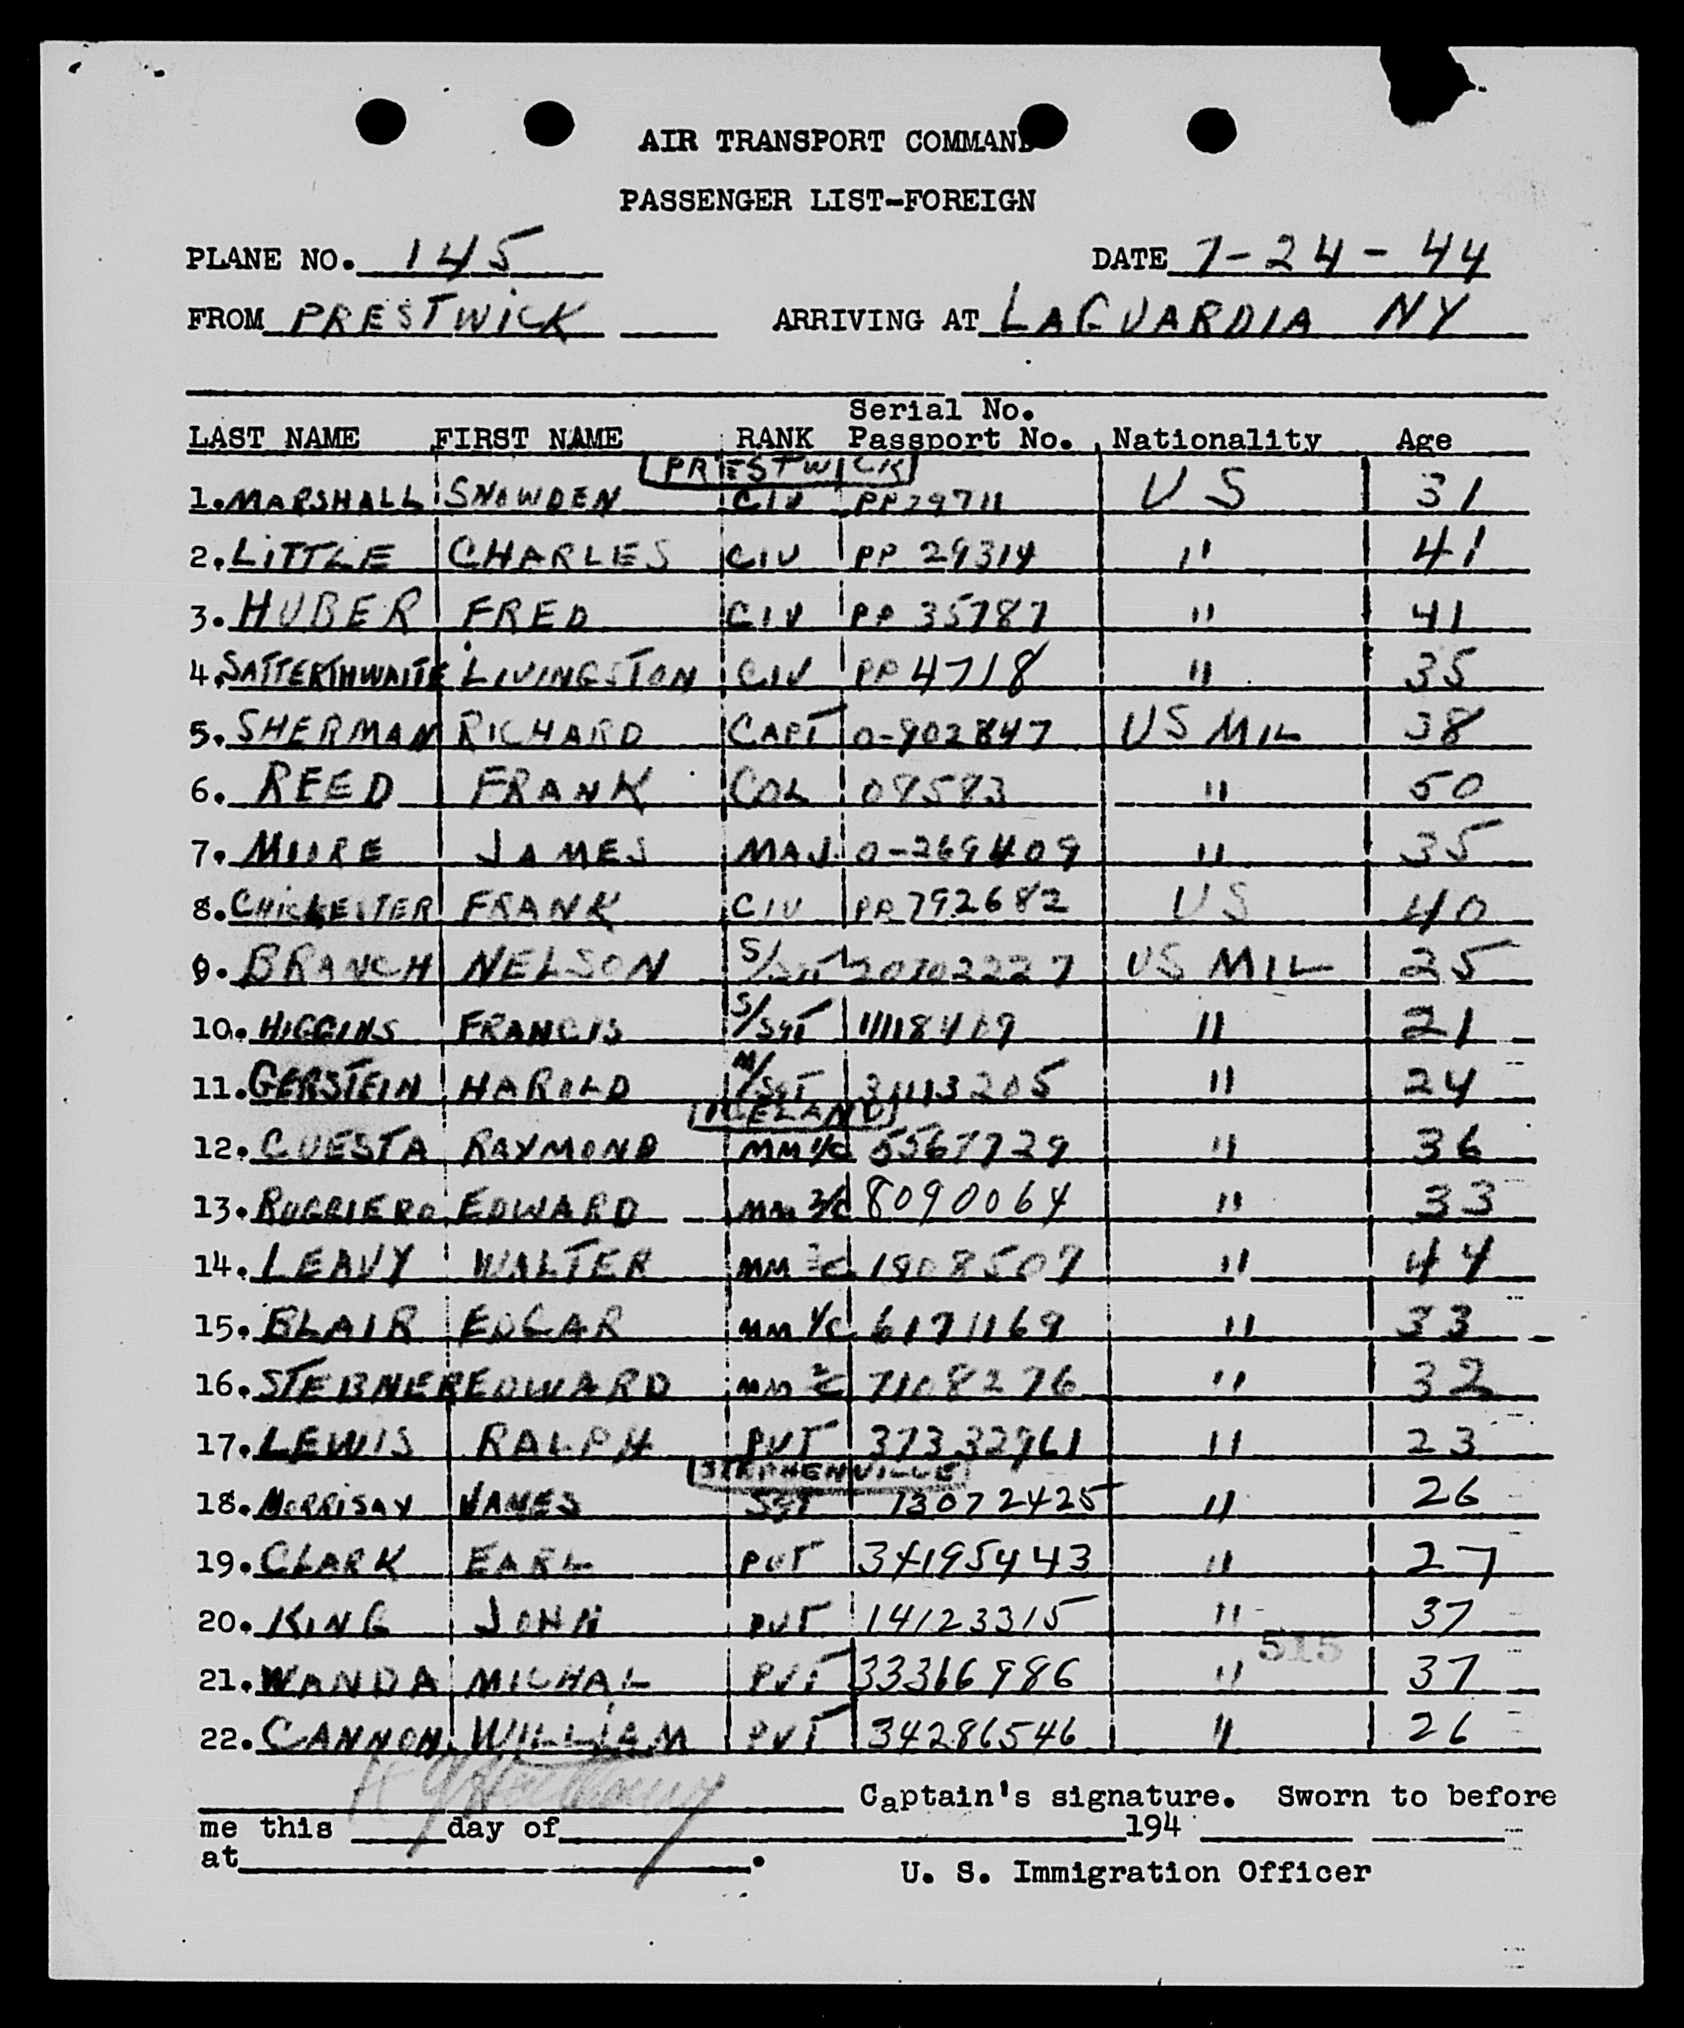 AIR TRANSPORT COMMAND
PASSENGER LIST-FOREIGN
PLANE NO. 145 DATE 7-24-44
FROM PRESTWICK ARRIVING AT LAGUARDIA NY
Serial No.
LAST NAME FIRST NAME RANK Passport No. Nationality Age
PRESTWICK
1. MARSHALL SNOWDEN CIV PP29711 US 31
2. LITTLE CHARLES CIV PP 29314 " 41
3. HUBER FRED CIV PP 35787 " 41
4. SATTERTHWAITE LIVINGSTON CIV PP 4718 " 35
5. SHERMAN RICHARD CAPT 0-902847 US MIL 38
6. REED FRANK COL 08583 " 50
7. MOORE JAMES MAJ. 0-269409 " 35
8. CHICHESTER FRANK CIV PP 792682 US 40
9. BRANCH NELSON S/SGT 20702227 US MIL 25
10. HIGGINS FRANCIS S/SGT 11118409 " 21
11. GERSTEIN HAROLD M/SGT 31113205 " 24
ICELAND
12. CUESTA RAYMOND MM 1/C 5567729 " 36
13. RUGGIERO EDWARD MM 3/C 8090064 " 33
14. LEAVY WALTER MM 2/C 1908507 " 44
15. BLAIR EDGAR MM 1/C 6171169 " 33
16. STEBNER EDWARD MM 2/C 7108276 " 32
17. LEWIS RALPH PVT 37332961 " 23
STEPHENVILLE
18. MORRISAY JAMES SGT 13072425 " 26
19. CLARK EARL PVT 34195443 " 27
20. KING JOHN PVT 14123315 " 37
515
21. WANDA MICHAL PVT 33366986 " 37
22. CANNON WILLIAM PVT 34286546 " 26
Captain's signature. Sworn to before
me this day of 194
at .
U. S. Immigration Officer